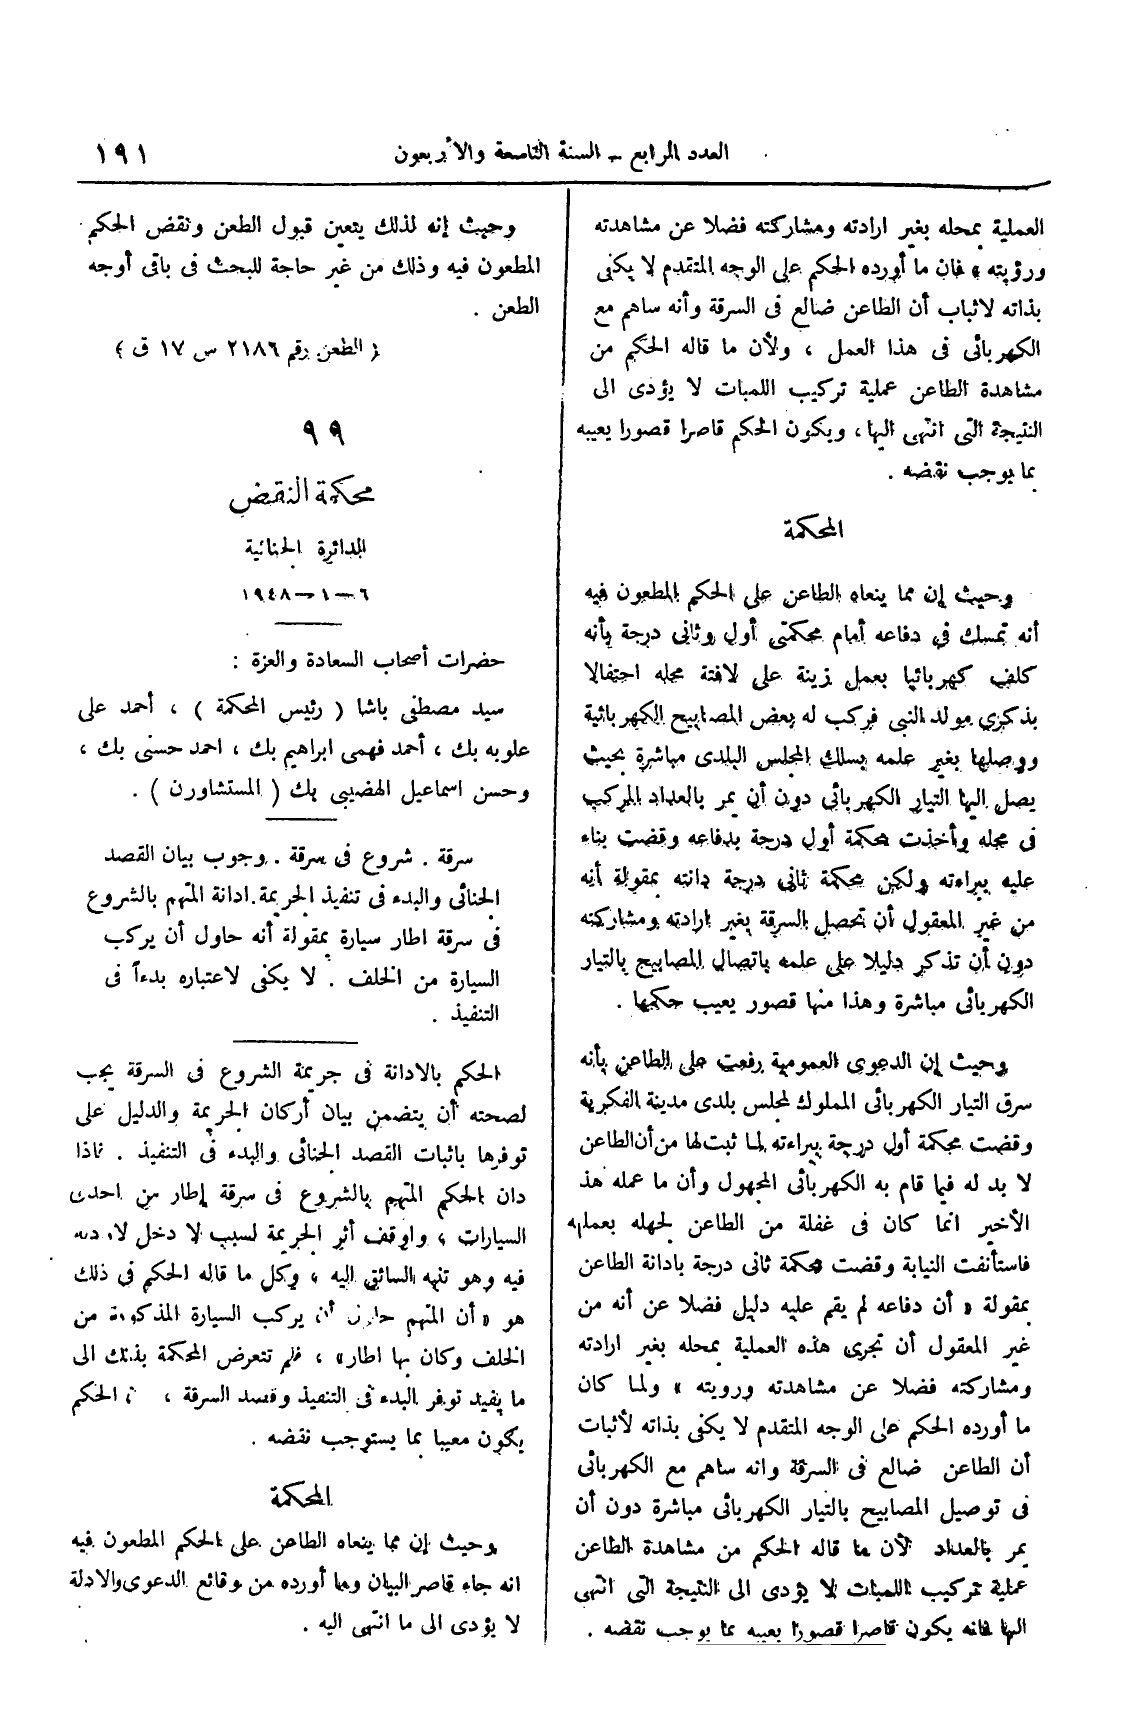 العدد الرابع – السنة التاسعة والأربعون
١٩١
العملية بمحله بغير ارادته ومشاركته فضلا عن مشاهدته
ورؤيته » فان ما أورده الحكم على الوجه المتقدم لا يكفى
بذاته لاثبات أن الطاعن ضالع فى السرقة وأنه ساهم مع
الكهربائى فى هذا العمل ، ولأن ما قاله الحكم من
مشاهدة الطاعن عملية تركيب اللمبات لا يؤدى الى
النتيجة التى انتهى اليها ، ويكون الحكم قاصرا قصورا يعيبه
بما يوجب نقضه .
المحكمة
وحيث إن مما ينعاه الطاعن على الحكم المطعون فيه
أنه تمسك في دفاعه أمام محكمتى أول وثانى درجة بأنه
كلف كهربائيا بعمل زينة على لافتة محله احتفالا
بذكرى مولد النبى فركب له بعض المصابيح الكهربائية
ووصلها بغير علمه بسلك المجلس البلدى مباشرة بحيث
يصل اليها التيار الكهربائى دون أن يمر بالعداد المركب
فى محله وأخذت محكمة أول درجة بدفاعه وقضت بناء
عليه ببراءته ولكن محكمة ثانى درجة دانته بمقولة أنه
من غير المعقول أن تحصل السرقة بغير ارادته ومشاركته
دون أن تذكر دليلا على علمه باتصال المصابيح بالتيار
الكهربائى مباشرة وهذا منها قصور يعيب حكمها .
وحيث إن الدعوى العمومية رفعت على الطاعن بأنه
سرق التيار الكهربائى المملوك لمجلس بلدى مدينة الفكرية
وقضت محكمة أول درجة ببراءته لما ثبت لها من أن الطاعن
لا بد له فيما قام به الكهربائى المجهول وأن ما عمله هذ
الأخير انما كان فى غفلة من الطاعن لجهله بعمليته
فاستأنفت النيابة وقضت محكمة ثانى درجة بادانة الطاعن
بمقولة « أن دفاعه لم يقم عليه دليل فضلا عن أنه من
غير المعقول أن تجرى هذه العملية بمحله بغير ارادته
ومشاركته فضلا عن مشاهدته ورويته » ولما كان
ما أورده الحكم على الوجه المتقدم لا يكفى بذاته لأثبات
أن الطاعن ضالع فى السرقة وانه ساهم مع الكهربائى
فى توصيل المصابيح بالتيار الكهربائى مباشرة دون أن
يمر بالعداد لأن ما قاله الحكم من مشاهدة الطاعن
عملية تركيب اللمبات لا يؤدى الى النتيجة التى انتهى
اليها فانه يكون قاصرا قصورا يعيبه بما يوجب نقضه .
وحيث إنه لذلك يتعين قبول الطعن ونقض الحكم
المطعون فيه وذلك من غير حاجة للبحث فى باقى أوجه
الطعن .
( الطعن رقم ٢١٨٦ س ١٧ ق )
٩٩
محكمة النقض
الدائرة الجنائية
٦–١–١٩٤٨
حضرات أصحاب السعادة والعزة :
سيد مصطفى باشا ( رئيس المحكمة ) ، أحمد على
علوبه بك ، أحمد فهمى ابراهيم بك ، احمد حسنى بك ،
وحسن اسماعيل الهضيبى بك ( المستشاورن ) .
سرقة . شروع فى سرقة . وجوب بيان القصد
الجنائى والبدء فى تنفيذ الجريمة . ادانة المتهم بالشروع
فى سرقة اطار سيارة بمقولة أنه حاول أن يركب
السيارة من الخلف . لا يكفى لاعتباره بدءاً فى
التنفيذ .
الحكم بالادانة فى جريمة الشروع فى السرقة يجب
لصحته أن يتضمن بيان أركان الجريمة والدليل على
توفرها باثبات القصد الجنائى والبدء فى التنفيذ . فاذا
دان الحكم المتهم بالشروع فى سرقة إطار من احدى
السيارات ، واوقف أثر الجريمة لسبب لا دخل لارادته
فيه وهو تنبه السائق اليه ، وكل ما قاله الحكم فى ذلك
هو « أن المتهم حاول أن يركب السيارة المذكورة من
الخلف وكان بها اطار » ، فلم تتعرض المحكمة بذلك الى
ما يفيد توفر البدء فى التنفيذ وقصد السرقة ، الحكم
يكون معيبا بما يستوجب نقضه .
المحكمة
وحيث إن مما ينعاه الطاعن على الحكم المطعون فيه
انه جاء قاصر البيان وما أورده من وقائع الدعوى والادلة
لا يؤدى الى ما انتهى اليه .